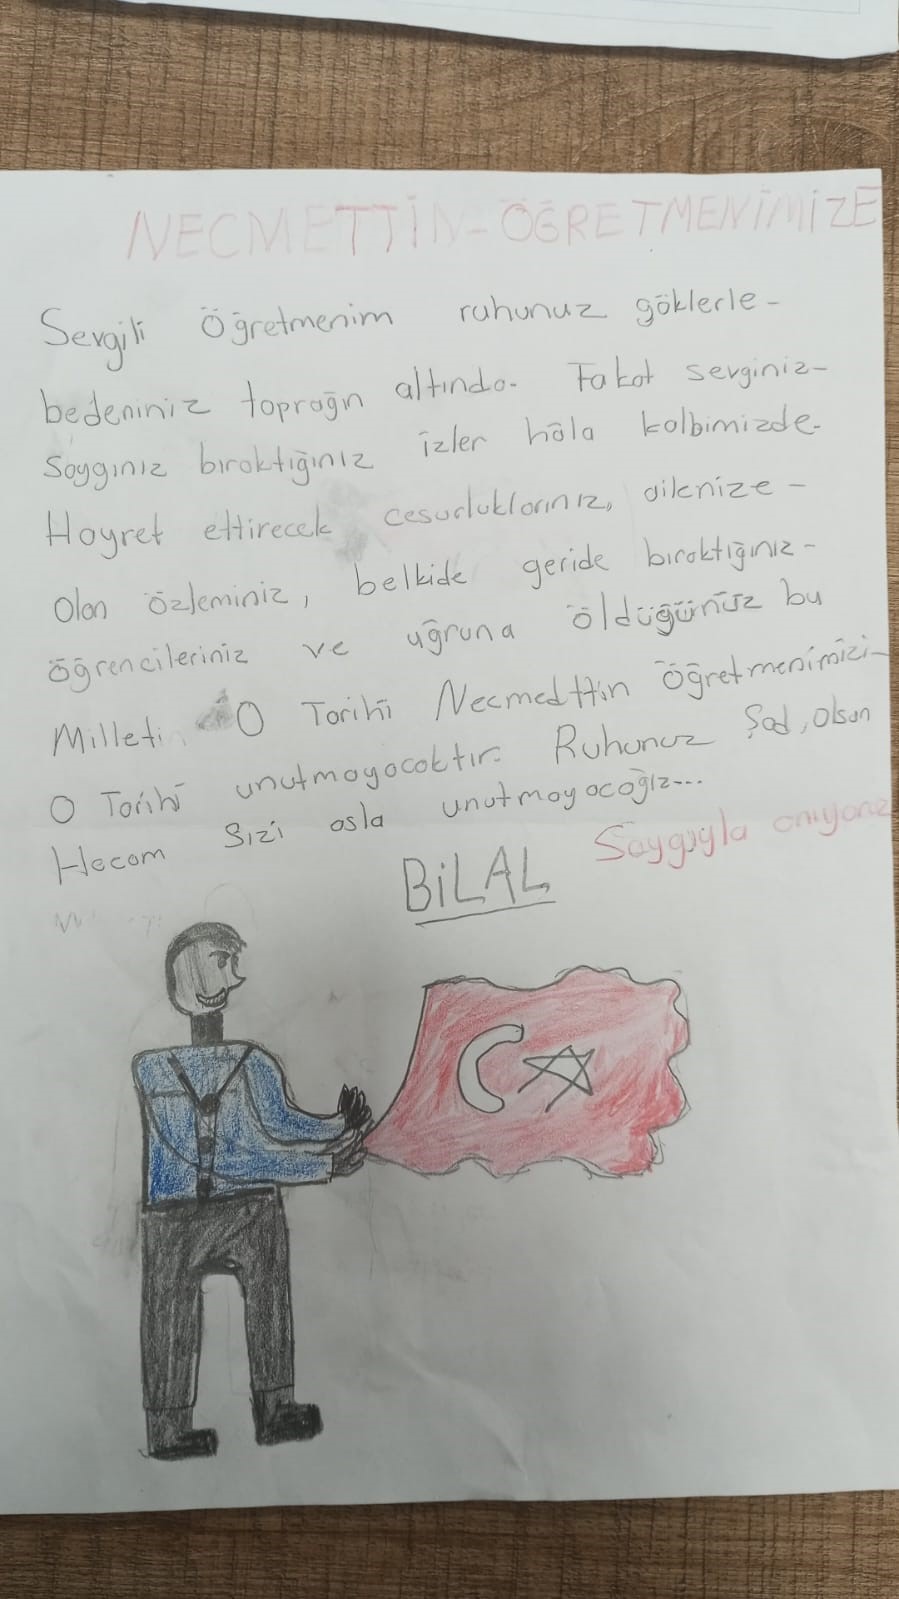 NECMETTİN-ÖĞRETMENİMİZE
Sevgili Öğretmenim ruhunuz göklerle-
bedeniniz toprağın altında. Fakat sevginiz-
Saygınız bıraktığınız izler hâla kalbimizde.
Hayret ettirecek cesurluklarınız, ailenize -
Olan özleminiz, belkide geride bıraktığınız-
öğrencileriniz ve uğruna öldüğünüz bu
Milleti. O Tarihî Necmedttin öğretmenimizi-
O Tarihî unutmayacaktır. Ruhunuz Şad, olsun
Hocam Sizi asla unutmayacağız...
Saygıyla anıyoruz
BİLAL